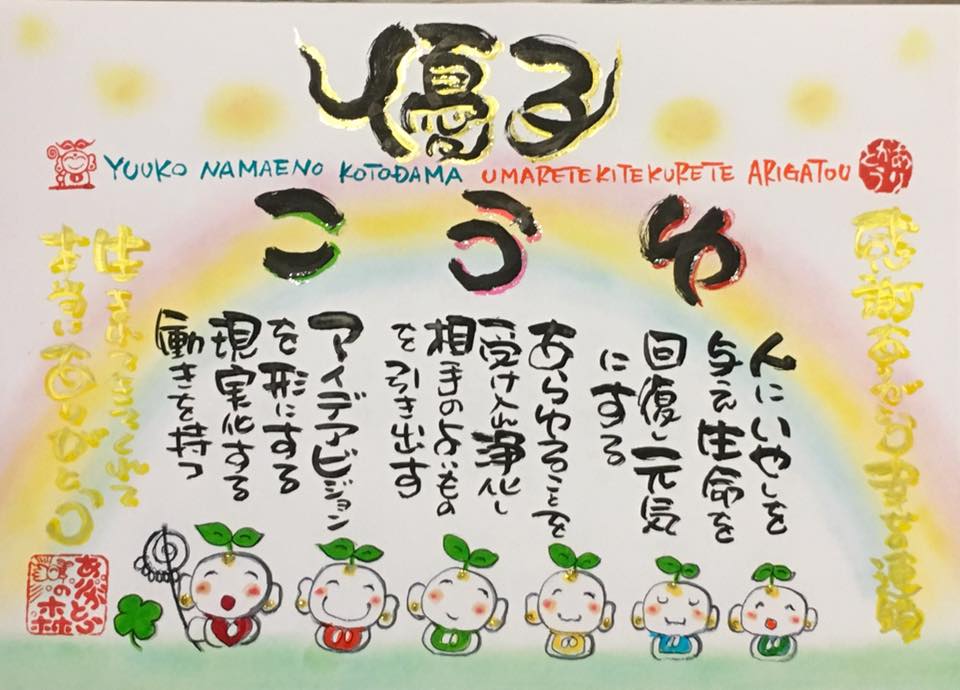 優子
YUUKO NAMAENO KOTODAMA UMARETEKITEKURETE ARIGATOU
ありがとう
感謝ありがとう幸せ
ゆ
う
こ
人にいやしを
与え生命を
回復し元気
にする
あらゆることを
受け入れ浄化し
相手のよいもの
を引き出す
アイデアビジョン
を形にする
現実化する
働きを持つ
生まれてきてくれて
本当にありがとう
ありがとう
の森